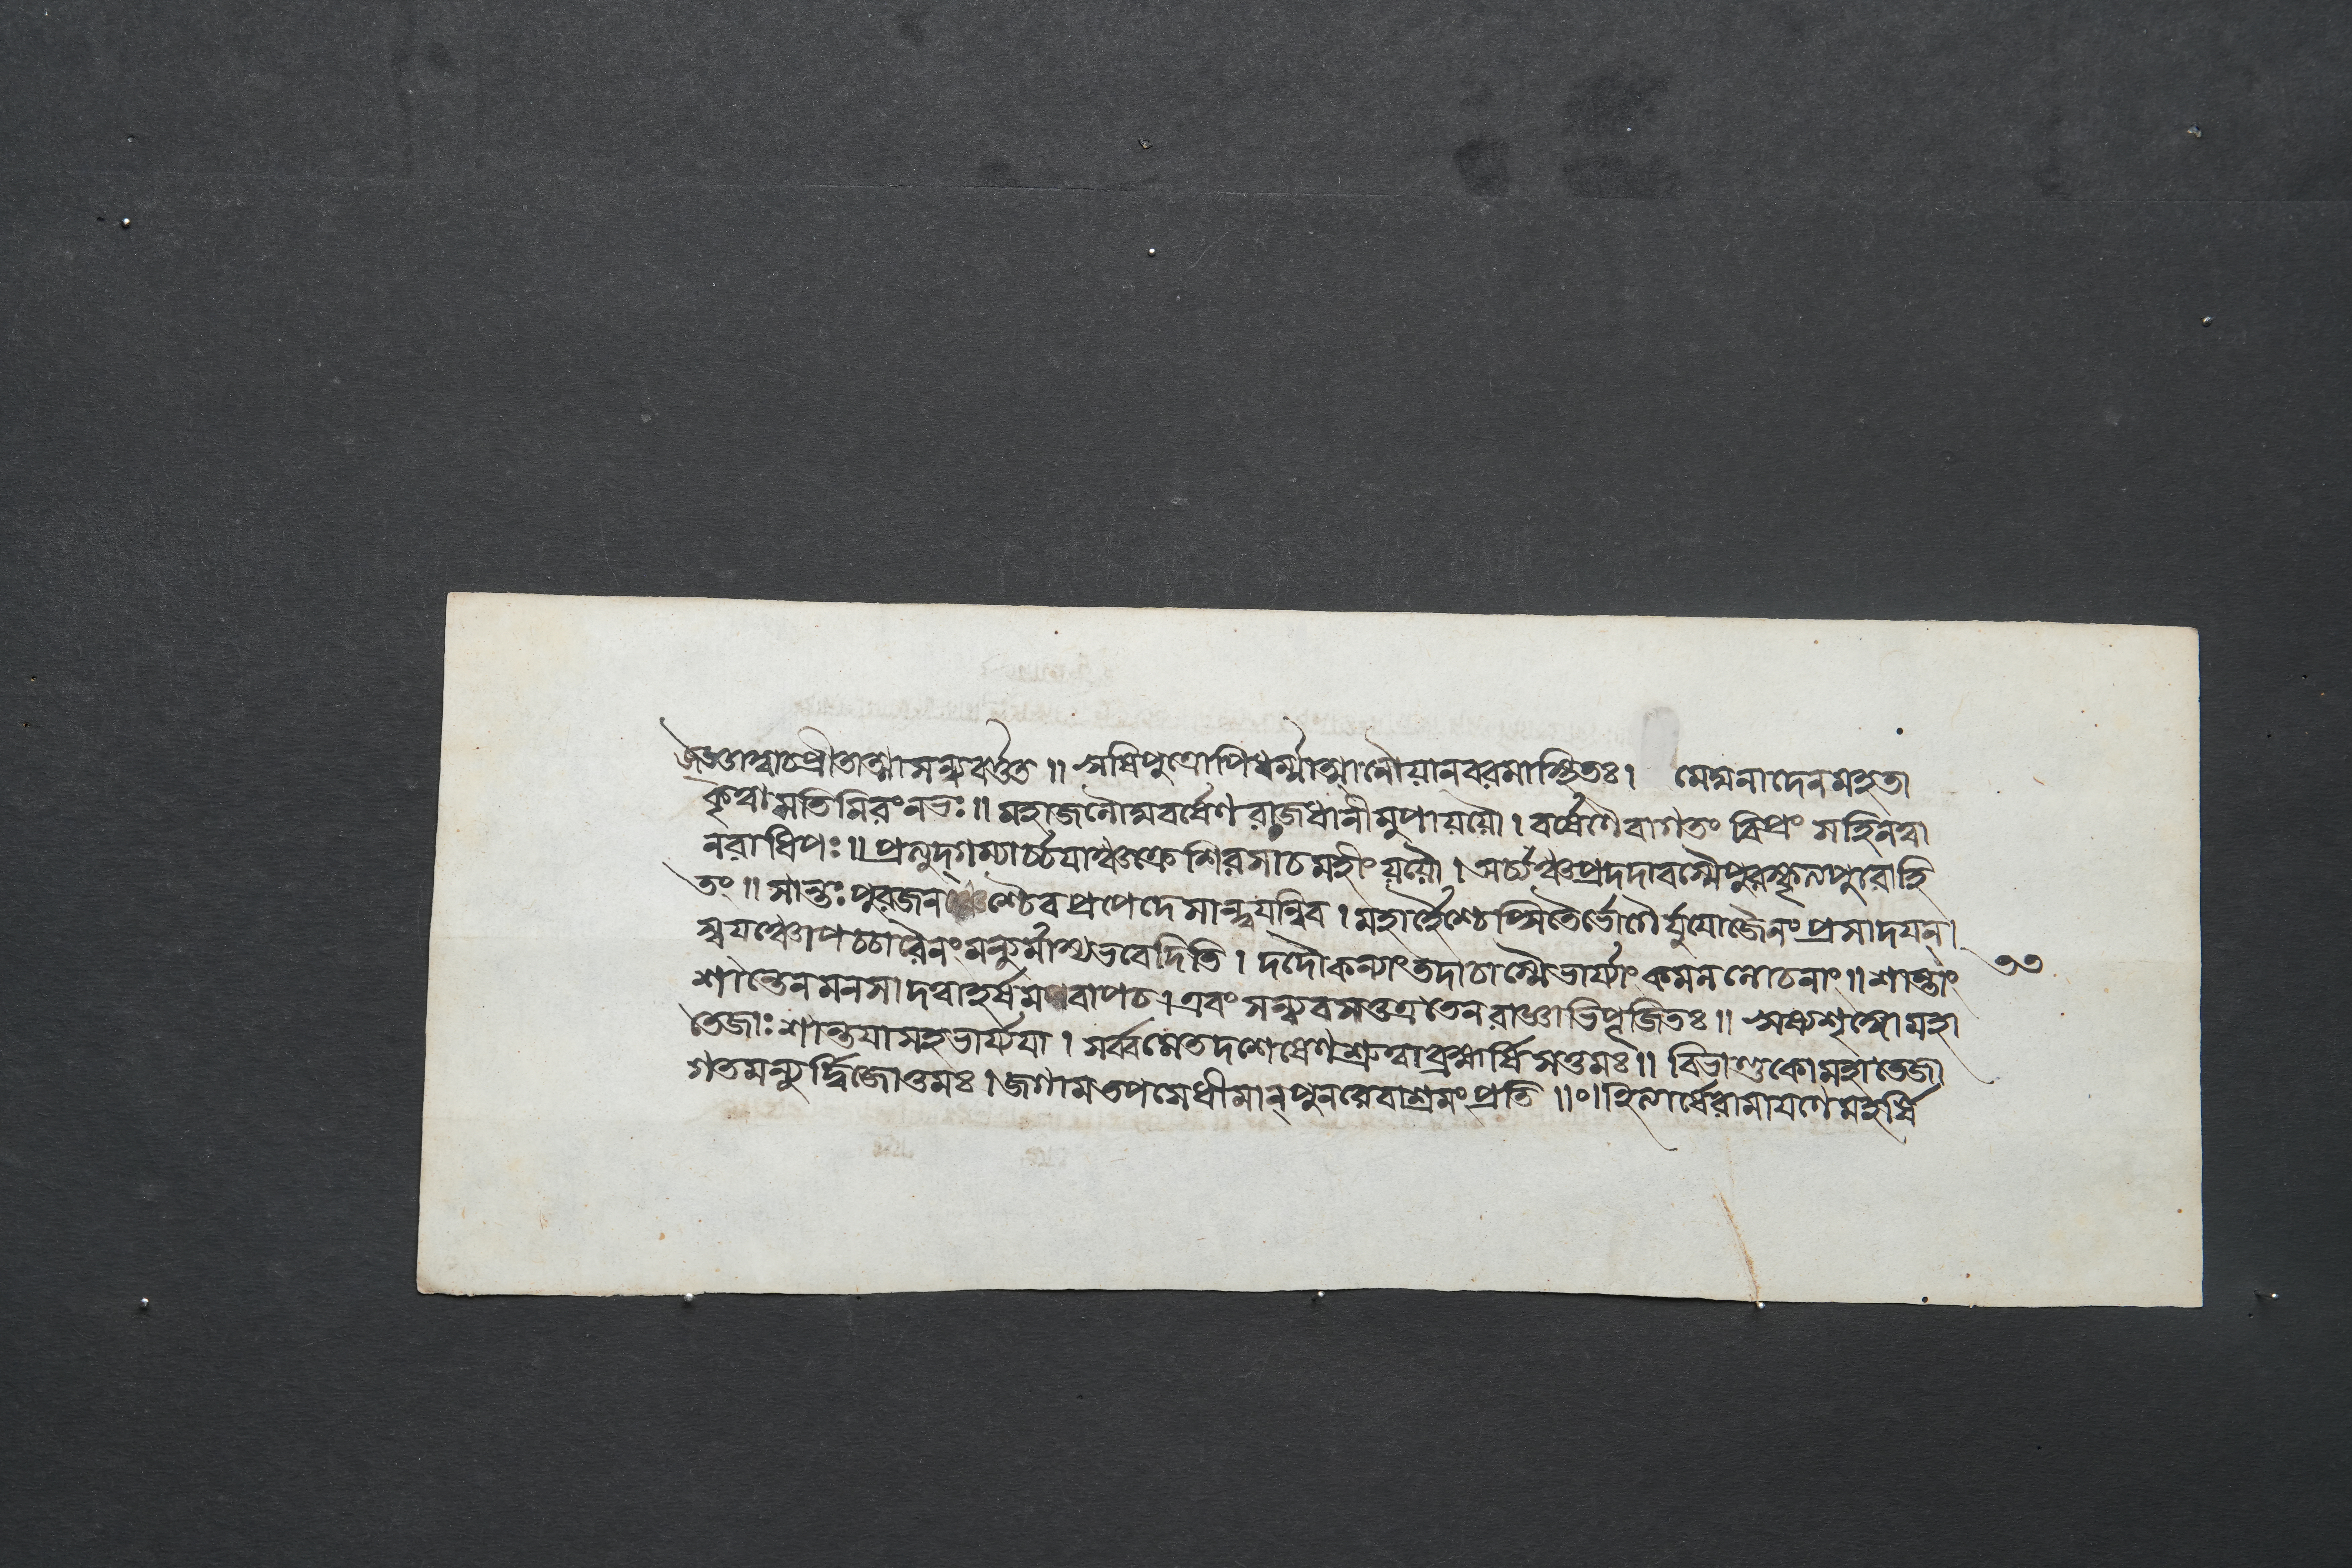 প্রীতাত্মাসন্যবর্ত্তত ॥ ঋষিপুত্রোপিধর্ম্মাত্মানৌযানবরমাস্থিতঃ। মেঘনাদেনমহতা
কৃত্বাসতিমিরংনভঃ॥ মহাজলৌঘবর্ষেণ রাজধানীমুপাযযৌ। বর্ষেণৈবাগতং বিপ্রং সহিমত্বা
নরাধিপঃ॥ প্রত্যুদ্গম্যার্চ্চযাঞ্চক্রে শিরসাচমহীং যযৌ। অর্ঘঞ্চপ্রদদাবস্মৈপুরস্কৃত্যপুরোহি
তং॥ সান্তঃপুরজনশ্চৈব প্রপেদে সান্ত্বযন্নিব। মহার্হৈশ্চেপ্সিতৈর্ভোগৈর্যুযোজৈনং প্রসাদযন্।
স্বযঞ্চোপচচারৈনং মন্যুর্মাস্যভবেদিতি। দদৌকন্যাংতদাচাস্মৈভার্য্যাং কমললোচনাং॥ শান্তাং
৩৩
শান্তেনমনসাদত্বাহর্ষমবাপচ। এবং সন্যবসত্তত্রতেনরাজ্ঞাভিপূজিতঃ॥ ঋষ্যশৃঙ্গোমহা
তেজাঃশান্তযাসহভার্য্যযা। সর্ব্বমেতদশেষেণশ্রুত্বাব্রহ্মর্ষিসত্তমঃ॥ বিভাণ্ডকোমহাতেজা
গতমন্যুর্দ্বিজোত্তমঃ। জগামতপসেধীমান্পুনরেবাশ্রমংপ্রতি॥০॥ইত্যার্ষেরামাযণেমহর্ষি